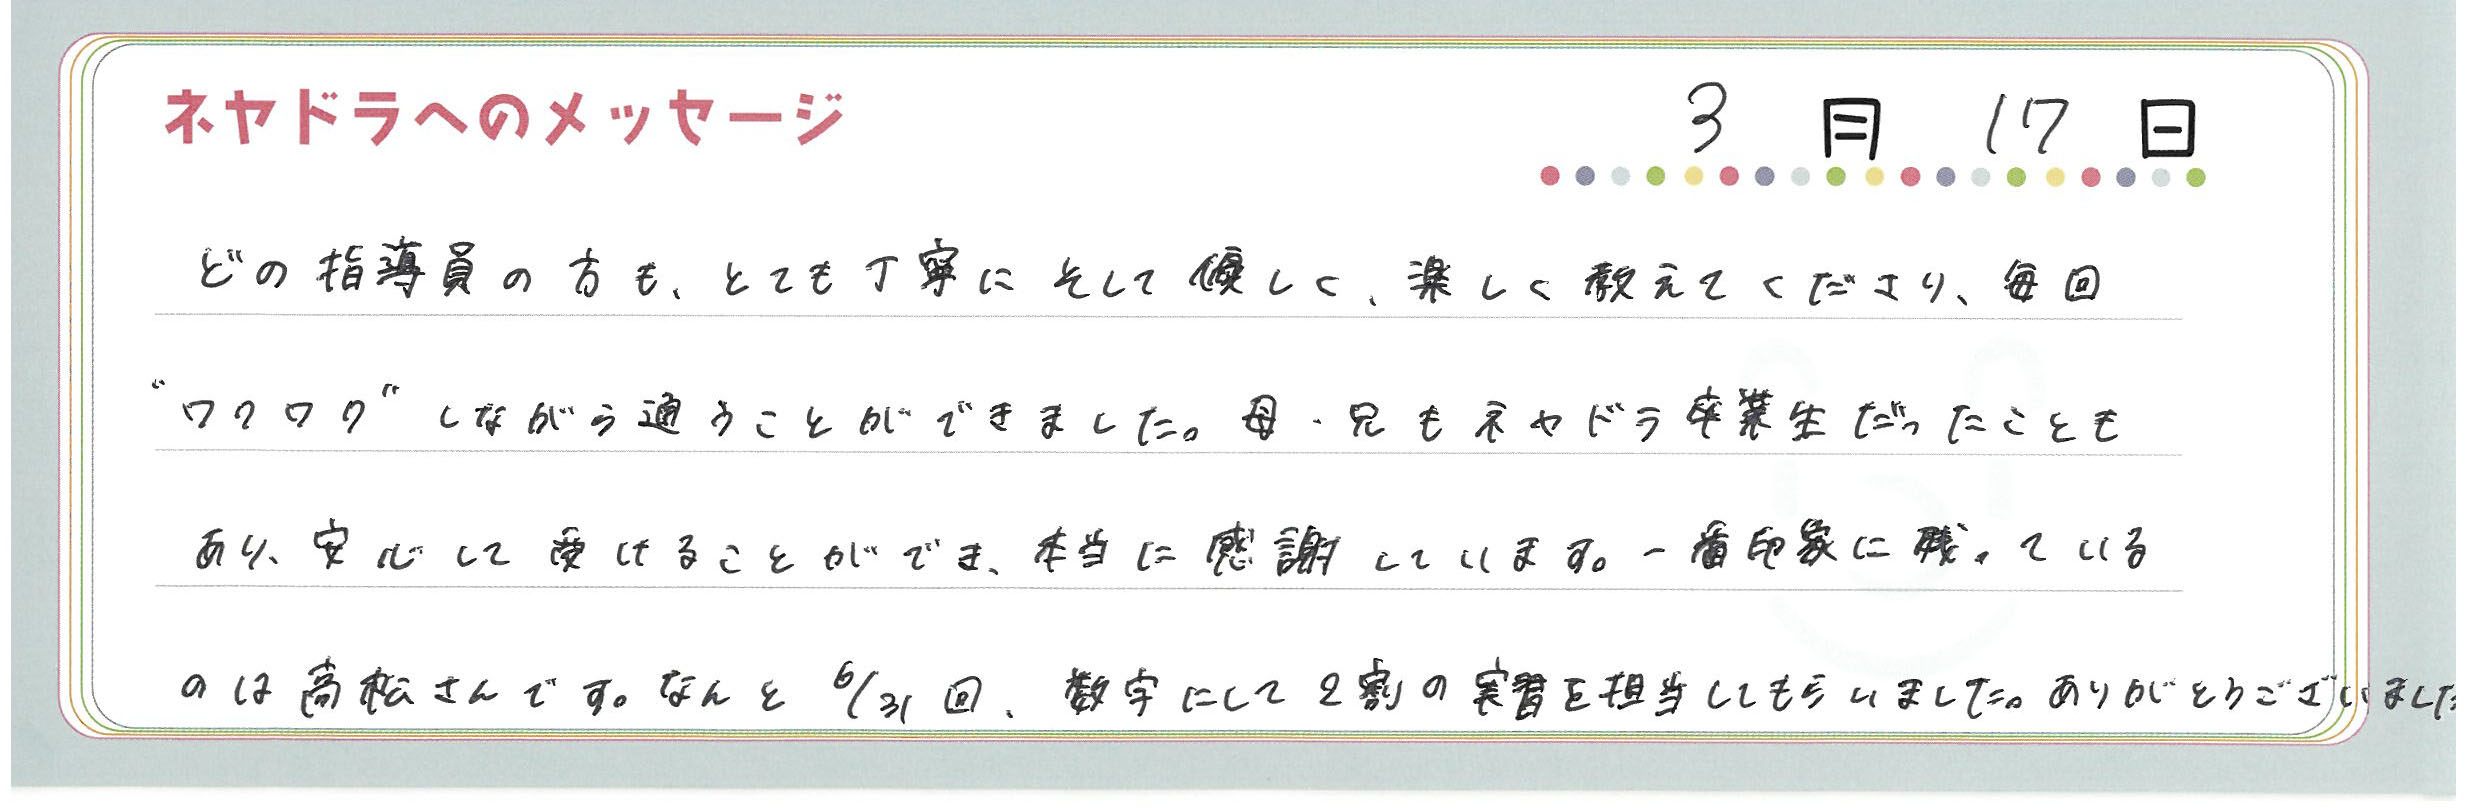 ネヤドラへのメッセージ
3月17日
どの指導員の方も、とても丁寧にそして優しく、楽しく教えてくださり、毎回
“ワクワク”しながら通うことができました。母・兄もネヤドラ卒業生だったことも
あり、安心して受けることができ、本当に感謝しています。一番印象に残っている
のは高松さんです。なんと6/31回、数字にして2割の実習を担当してもらいました。ありがとうございました